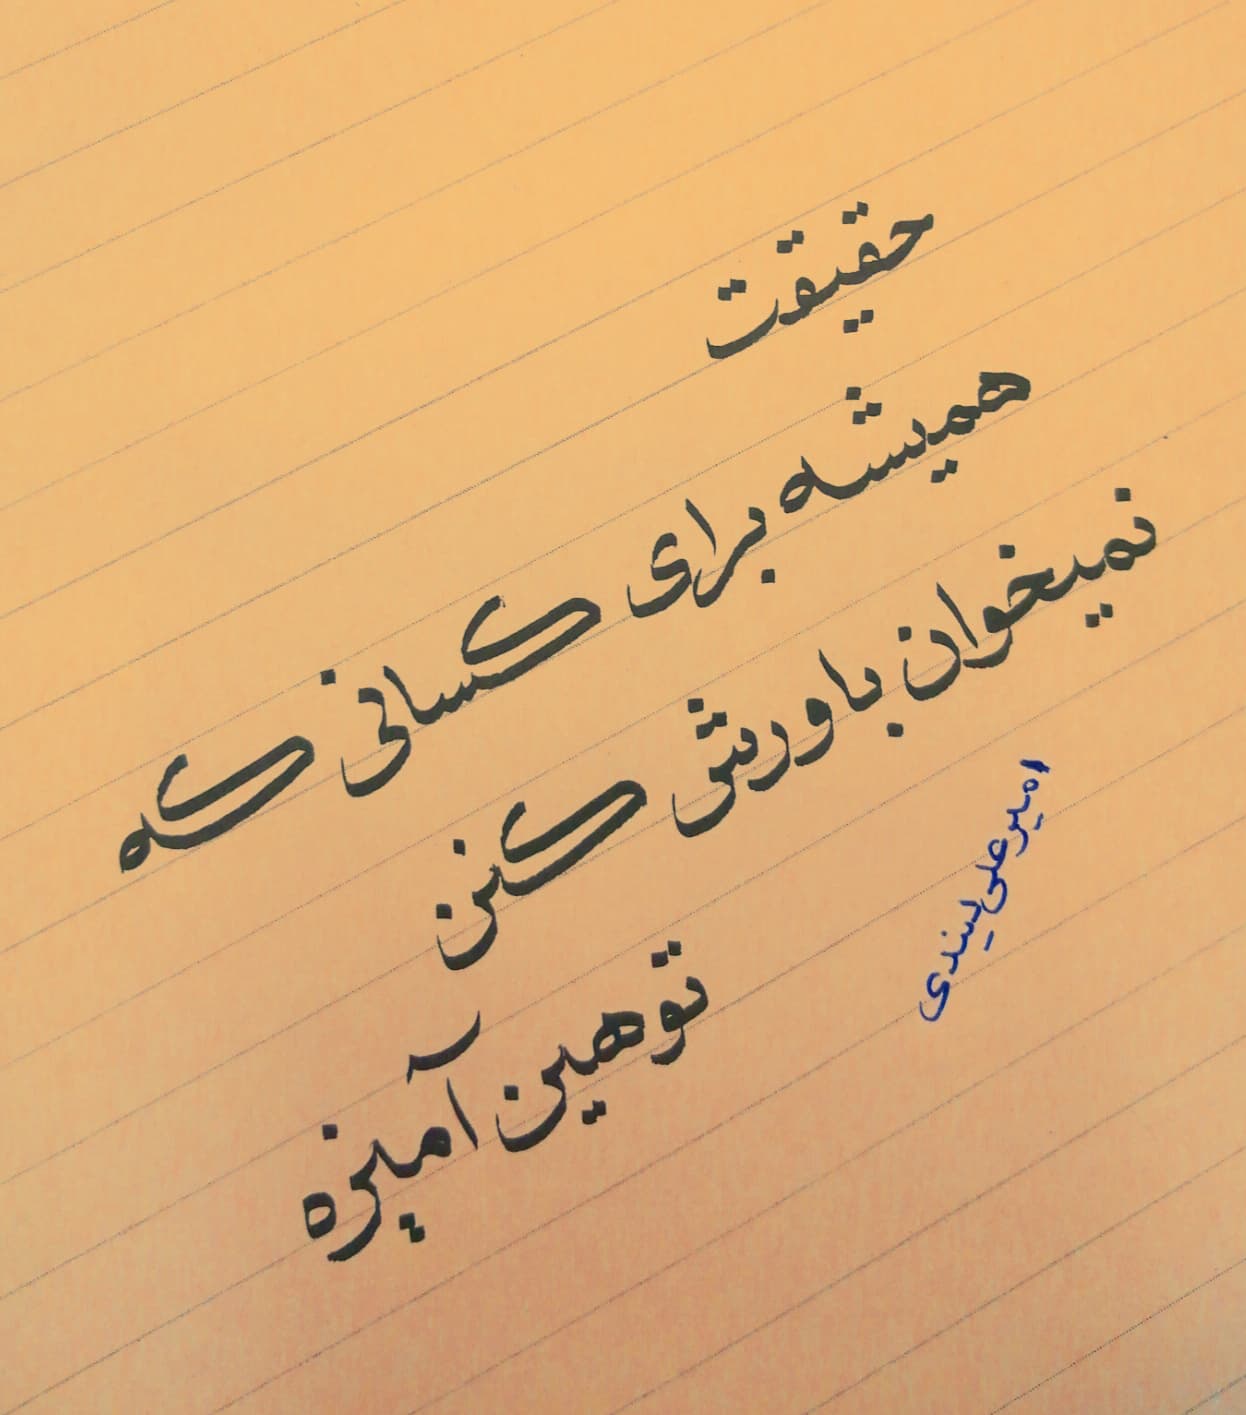 حقیقت
همیشه برای کسانی که
نمیخوان باورش کنن
توهین آمیزه
امیرعلی